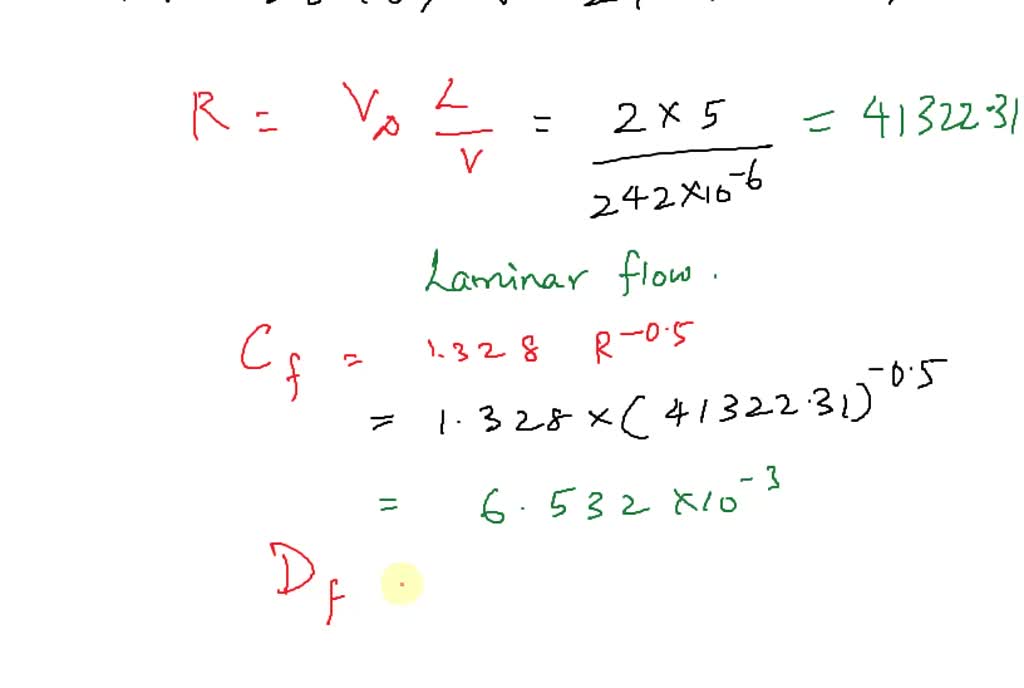 R = V∞ L/ν = 2 × 5 / 242×10⁻⁶ = 41322.31
Laminar flow.
C_f = 1.328 R^-0.5
= 1.328 × (41322.31)^-0.5
= 6.532 × 10⁻³
D_f